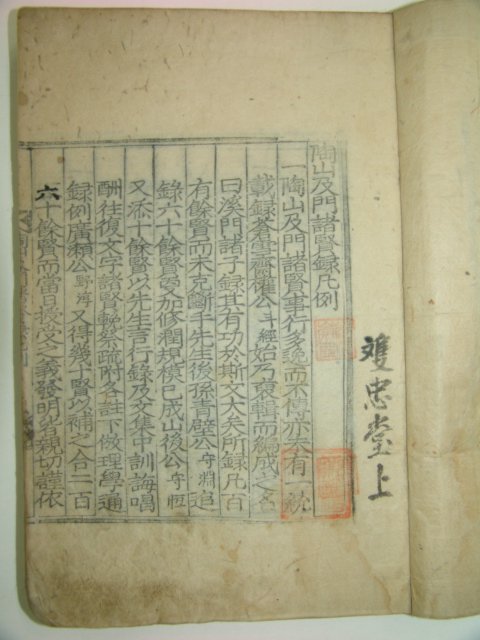 陶山及門諸賢錄凡例
一陶山及門諸賢事行多逸而不傳亦未有一統
載錄蒼雪齋權公斗經始乃裒輯而編成之名
曰溪門諸子錄其有功於斯文大矣所錄凡百
有餘賢而未克斷手先生後孫靑壁公守淵追
錄六十餘賢爰加修潤規模已成山後公守恒
又添十餘賢以先生言行錄及文集中訓誨唱
酬往復文字諸賢輓祭疏附各註下倣理學通
錄例廣瀨公野淳又得幾十賢以補之合二百
六十餘賢而當日授受之義發明皆親切謹依
雙忠堂上